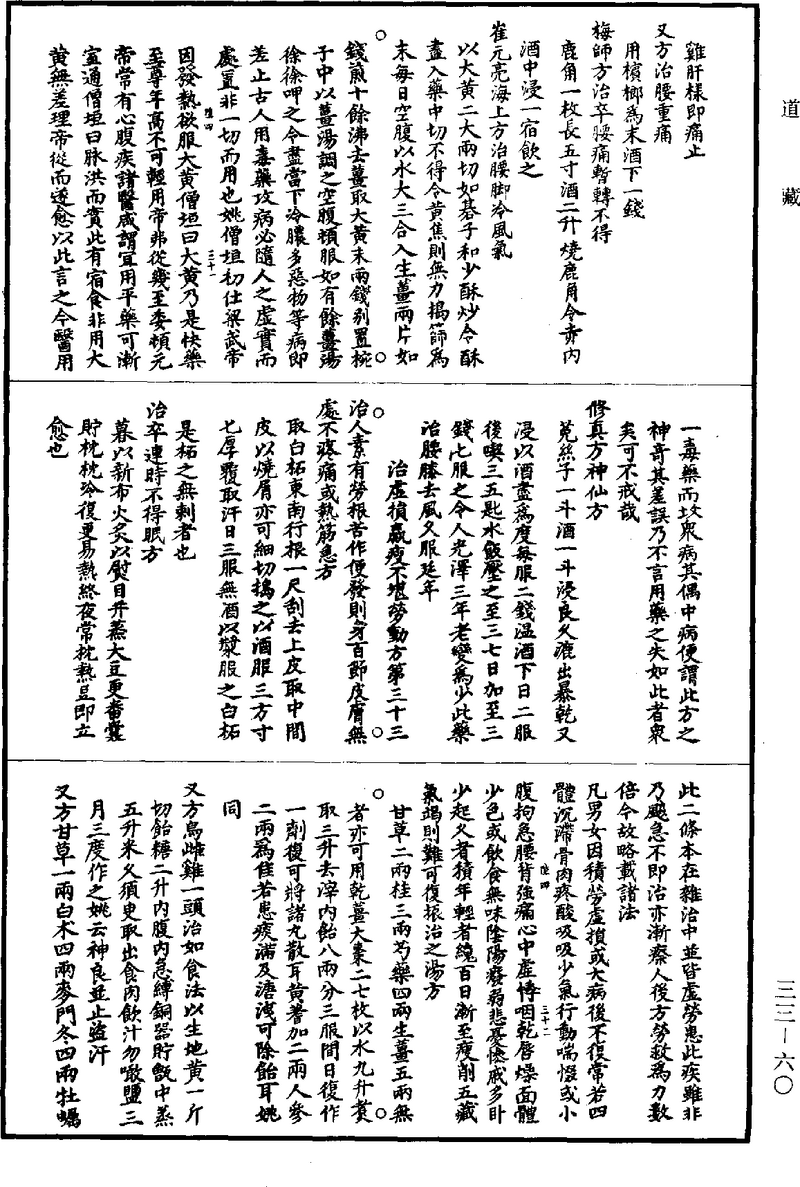 道藏
雞肝樣即痛止
又方治腰重痛
用檳榔為末酒下一錢
梅師方治卒腰痛暫轉不得
鹿角一枚長五寸酒二升燒鹿角令赤內
酒中浸一宿飲之
崔元亮海上方治腰脚冷風氣
以大黃二大兩切如碁子和少酥炒令酥
盡入藥中切不得令黃焦則無力搗篩為
末每日空腹以水大三合入生薑兩片如
錢煎十餘沸去薑取大黃末兩錢別置椀
子中以薑湯調之空腹頓服如有餘薑湯
徐徐呷之令盡當下冷膿多惡物等病即
差止古人用毒藥攻病必隨人之虛實而
處置非一切而用也姚僧垣初仕梁武帝
因發熱欲服大黃僧垣曰大黃乃是快藥
至尊年高不可輕用帝弗從幾至委頓元
帝常有心腹疾諸醫咸謂宜用平藥可漸
宣通僧垣曰脉洪而實此有宿食非用大
黃無差理帝從而遂愈以此言之今醫用
一毒藥而攻衆病其偶中病便謂此方之
神奇其差誤乃不言用藥之失如此者衆
矣可不戒哉
修真方神仙方
菟絲子一斗酒一斗浸良久漉出暴乾又
浸以酒盡為度每服二錢溫酒下日二服
後喫三五匙水飯壓之至三七日加至三
錢匕服之令人光澤三年老變為少此藥
治腰膝去風久服延年
治虛損羸瘦不堪勞動方第三十三
治人素有勞根苦作便發則身百節皮膚無
處不疼痛或熱筋急方
取白柘東南行根一尺刮去上皮取中間
皮以燒屑亦可細切搗之以酒服三方寸
匕厚覆取汗日三服無酒以漿服之白柘
是柘之無刺者也
治卒連時不得眠方
暮以新布火炙以熨目并蒸大豆更番囊
貯枕枕冷復更易熱終夜常枕熱豆即立
愈也
此二條本在雜治中並皆虛勞患此疾雖非
乃飈急不即治亦漸瘵人後方勞救為力數
倍今故略載諸法
凡男女因積勞虛損或大病後不復常若四
體沉滯骨肉疼酸吸吸少氣行動喘惙或小
腹拘急腰背強痛心中虛悸咽乾唇燥面體
少色或飲食無味陰陽廢弱悲憂慘戚多卧
少起久者積年輕者纔百日漸至瘦削五藏
氣竭則難可復振治之湯方
甘草二兩桂三兩芍藥四兩生薑五兩無
者亦可用乾薑大棗二七枚以水九升煑
取三升去滓內飴八兩分三服間日復作
一劑復可將諸丸散耳黃耆加二兩人參
二兩為佳若患痰滿及溏洩可除飴耳姚
同
又方烏雌雞一頭治如食法以生地黃一斤
切飴糖二升內腹內急縛銅器貯甑中蒸
五升米久須臾取出食肉飲汁勿噉鹽三
月三度作之姚云神良並止盜汗
又方甘草一兩白朮四兩麥門冬四兩牡蠣
三三—六〇